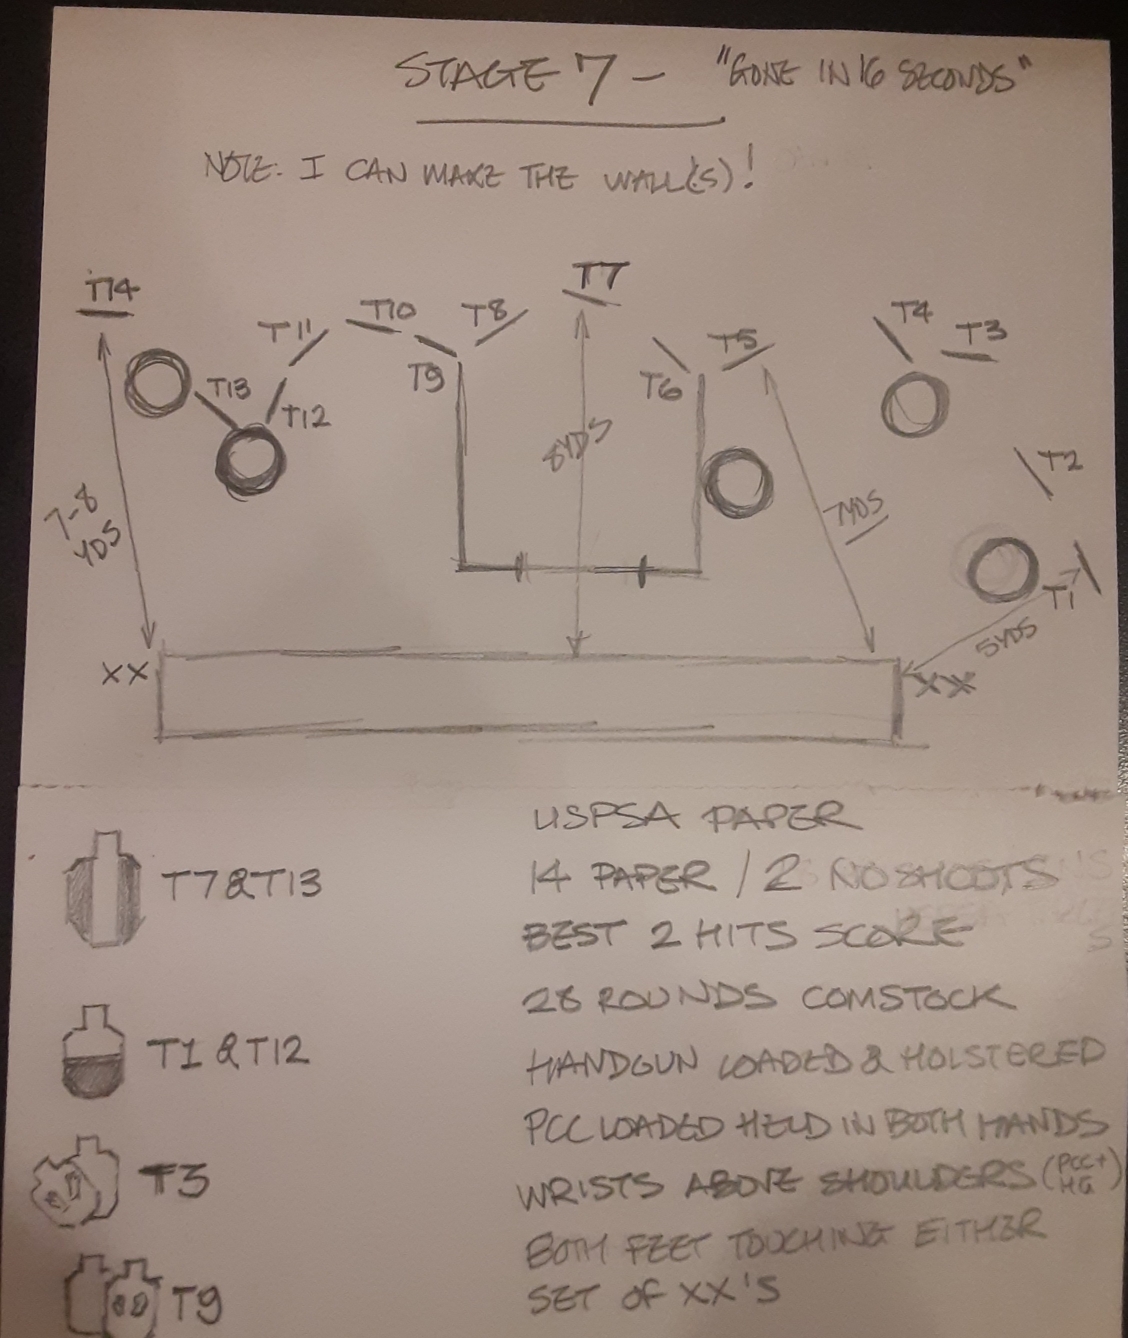 STAGE 7 - "GONE IN 16 SECONDS"
NOTE: I CAN MAKE THE WALL(S)!
T14
T13
T12
T11
T10
T9
T8
T7
T6
T5
T4
T3
T2
T1
7-8 YDS
8YDS
7YDS
5YDS
XX
XX
T7 & T13
T1 & T12
T3
T9
USPSA PAPER
14 PAPER / 2 NOSHOOTS
BEST 2 HITS SCORE
28 ROUNDS COMSTOCK
HANDGUN LOADED & HOLSTERED
PCC LOADED HELD IN BOTH HANDS
WRISTS ABOVE SHOULDERS (PCC + HG)
BOTH FEET TOUCHING EITHER
SET OF XX'S